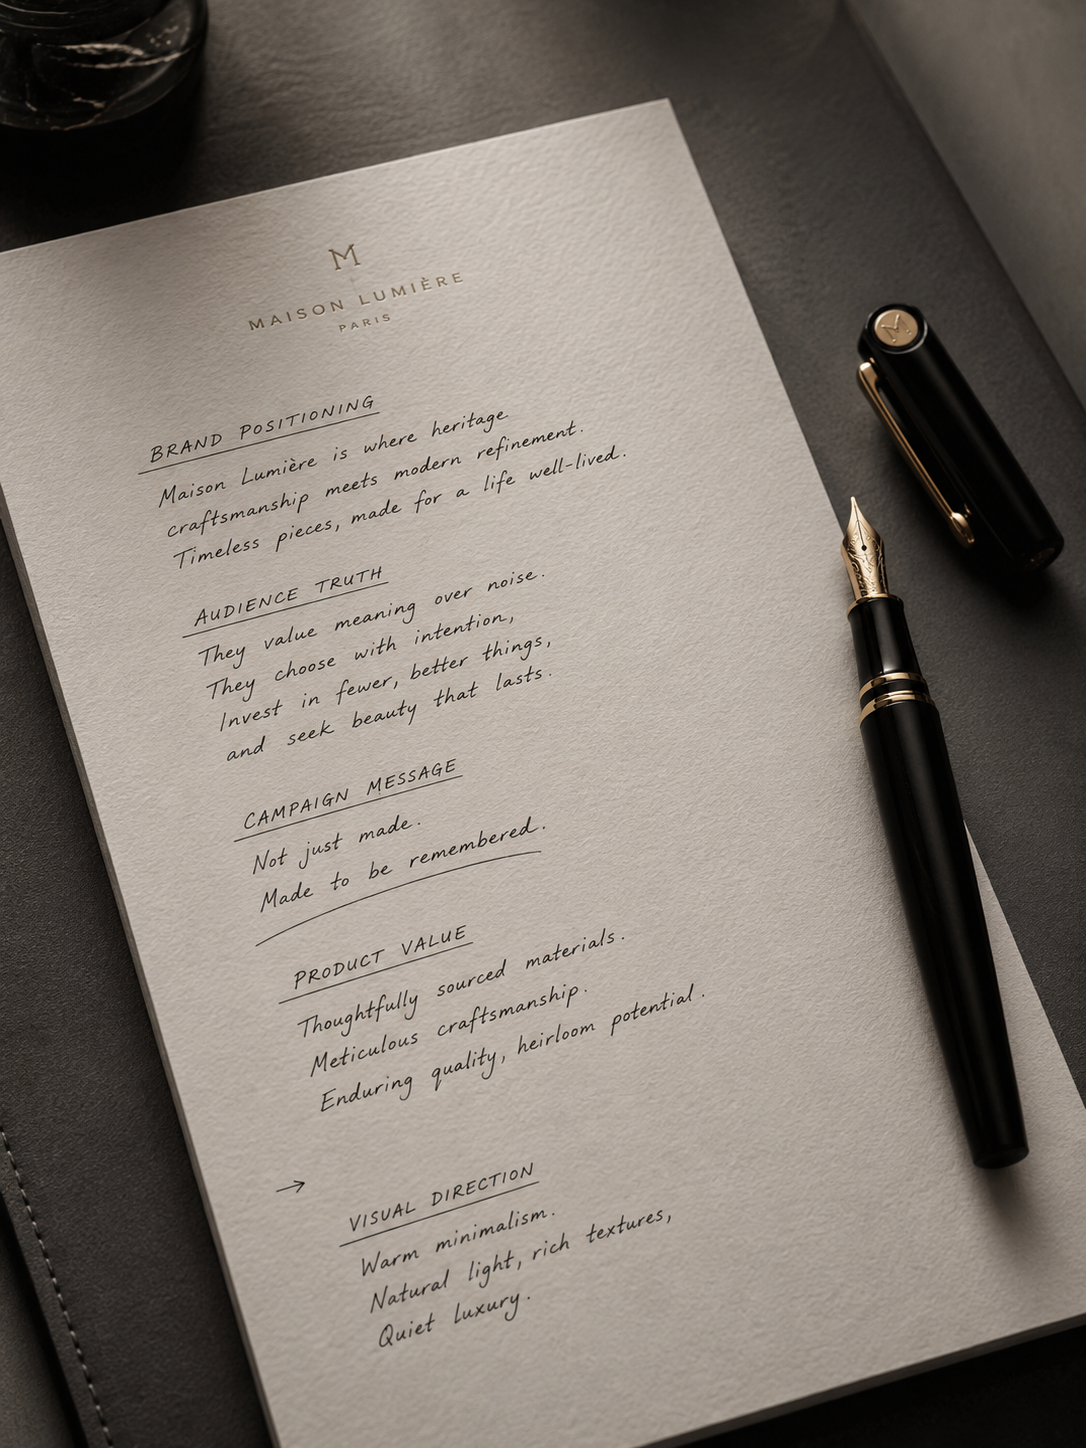 M
MAISON LUMIÈRE
PARIS
BRAND POSITIONING
Maison Lumière is where heritage
craftsmanship meets modern refinement.
Timeless pieces, made for a life well-lived.
AUDIENCE TRUTH
They value meaning over noise.
They choose with intention,
Invest in fewer, better things,
and seek beauty that lasts.
CAMPAIGN MESSAGE
Not just made.
Made to be remembered.
PRODUCT VALUE
Thoughtfully sourced materials.
Meticulous craftsmanship.
Enduring quality, heirloom potential.
→
VISUAL DIRECTION
Warm minimalism.
Natural light, rich textures,
Quiet luxury.
M